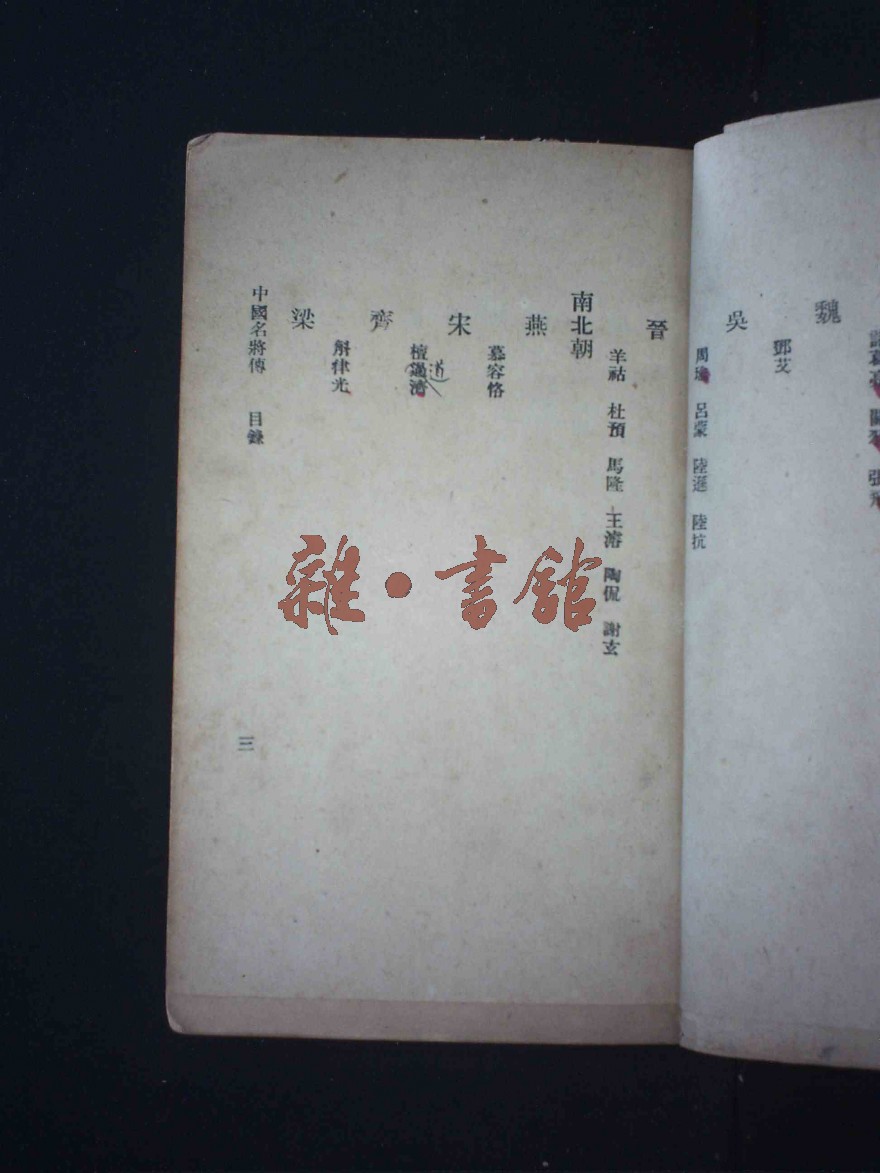 魏
鄧艾
吳
周瑜 呂蒙 陸遜 陸抗
晉
羊祜 杜預 馬隆 王濬 陶侃 謝玄
南北朝
燕
慕容恪
宋
檀濟
道
齊
斛律光
梁
中國名將傳 目錄
三
雜·書館